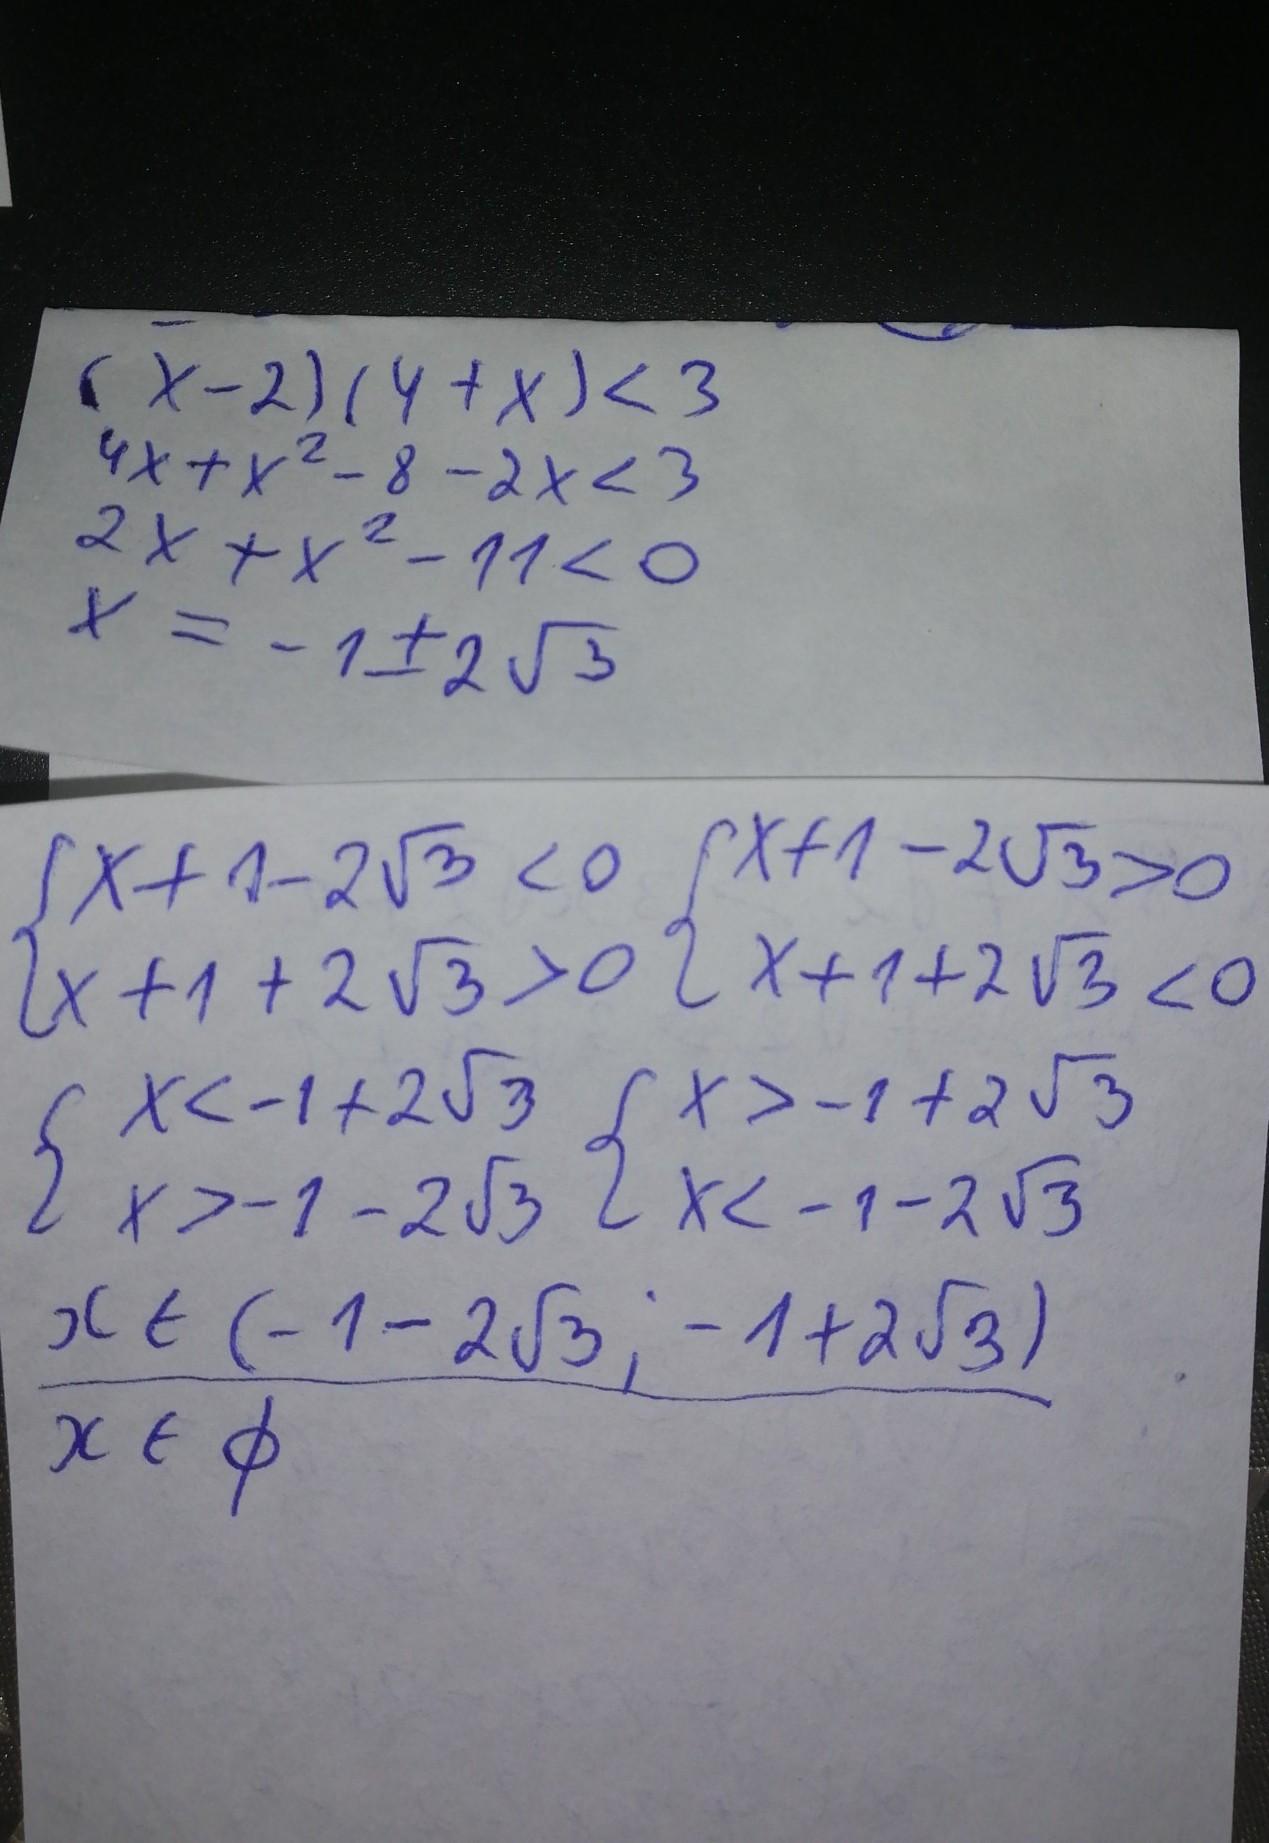 (x-2)(4+x)<3
4x+x²-8-2x<3
2x+x²-11<0
x=-1±2√3
{x+1-2√3<0 {x+1-2√3>0
{x+1+2√3>0 {x+1+2√3<0
{x<-1+2√3 {x>-1+2√3
{x>-1-2√3 {x<-1-2√3
x∈(-1-2√3;-1+2√3)
x∈ϕ